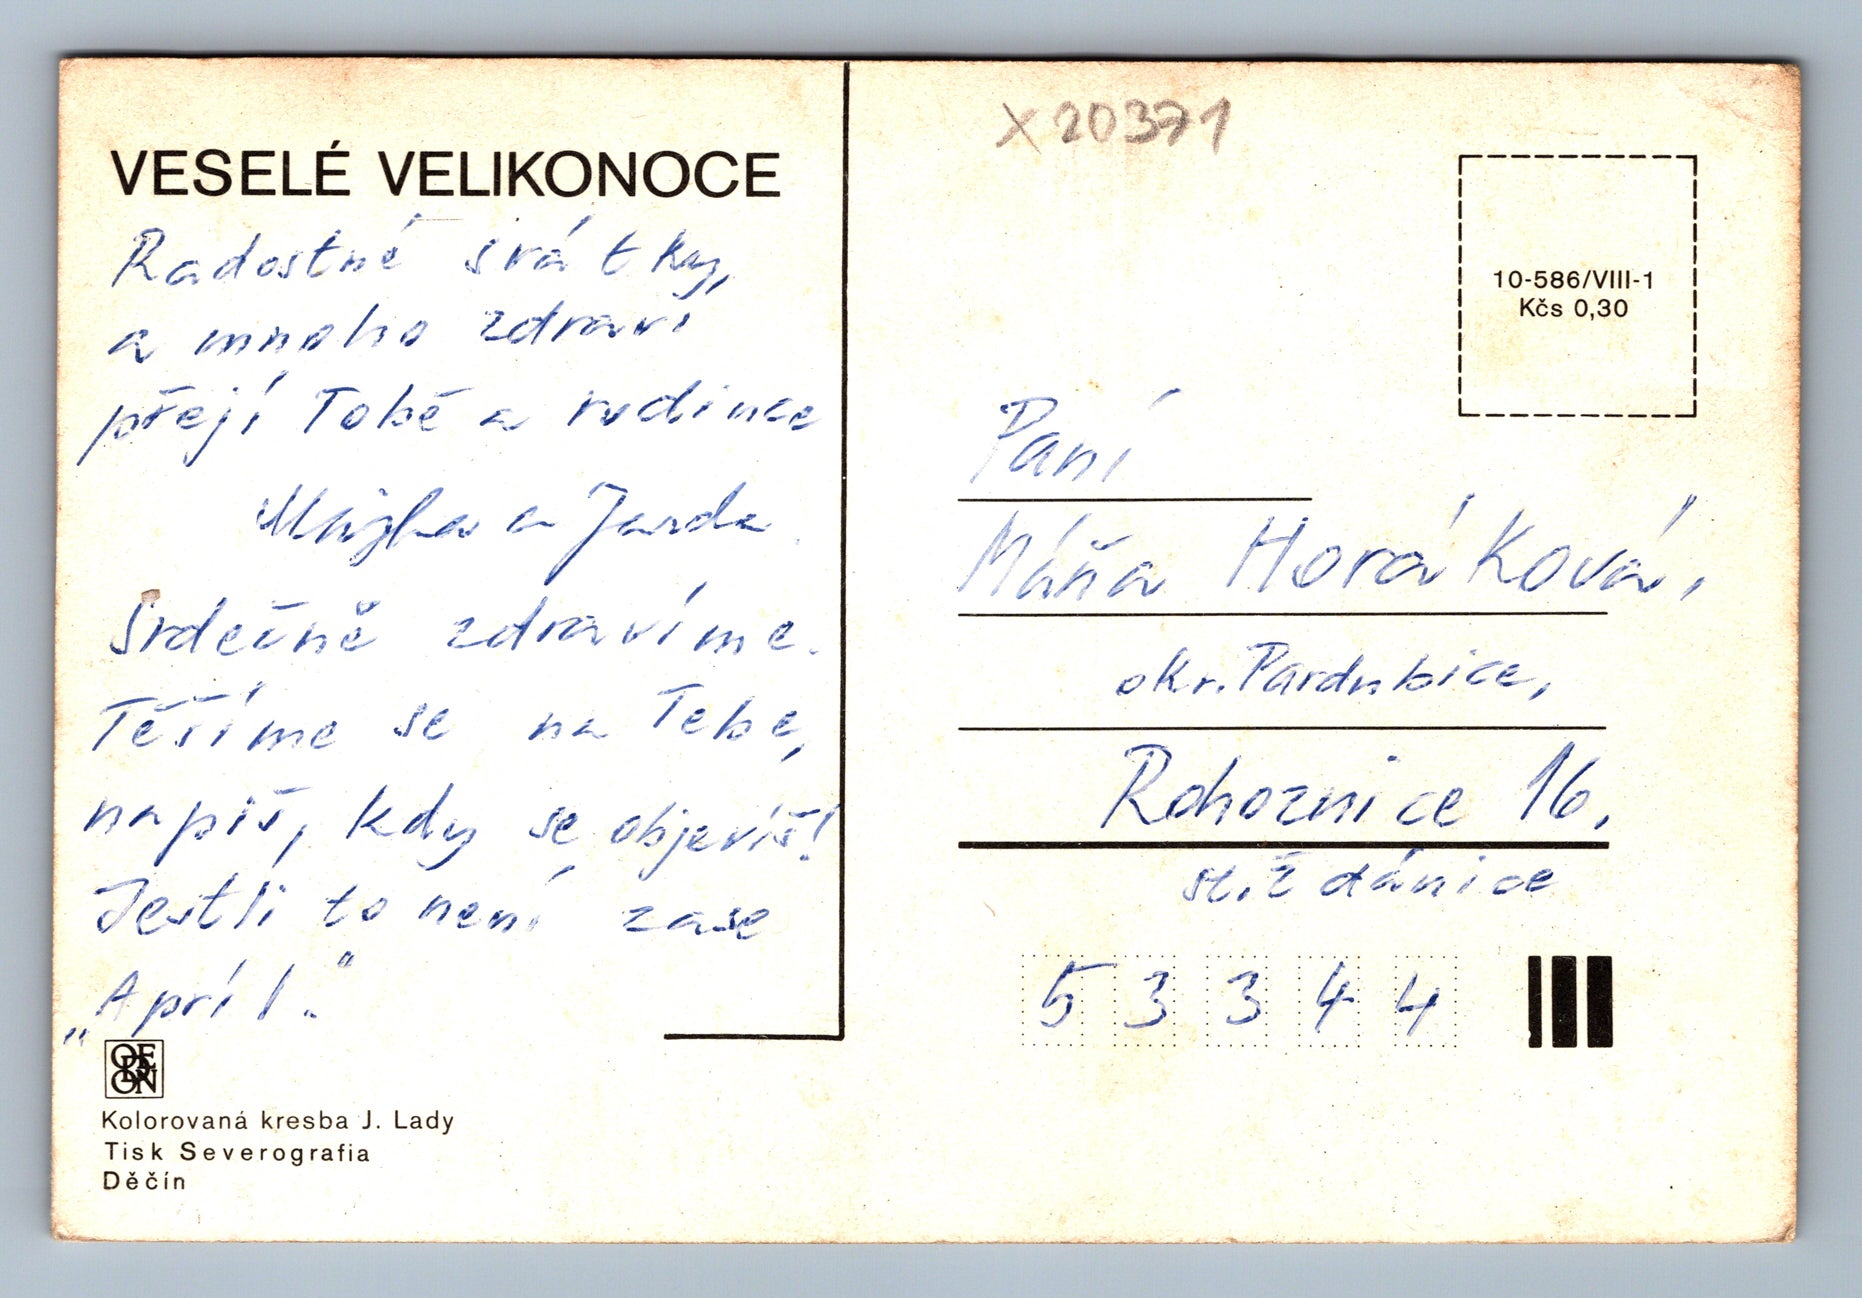 VESELÉ VELIKONOCE
Radostné svátky,
a mnoho zdraví
přejí Tobě a rodince
a Jarda.
Srdečně zdravíme.
Těšíme se na Tebe,
napiš, kdy se objevíš!
Jestli to není zase
„Apríl."
ODEON
Kolorovaná kresba J. Lady
Tisk Severografia
Děčín
X 20371
10-586/VIII-1
Kčs 0,30
Paní
Máňa Horáková,
okr. Pardubice,
Rohoznice 16,
st. Ždánice
53344